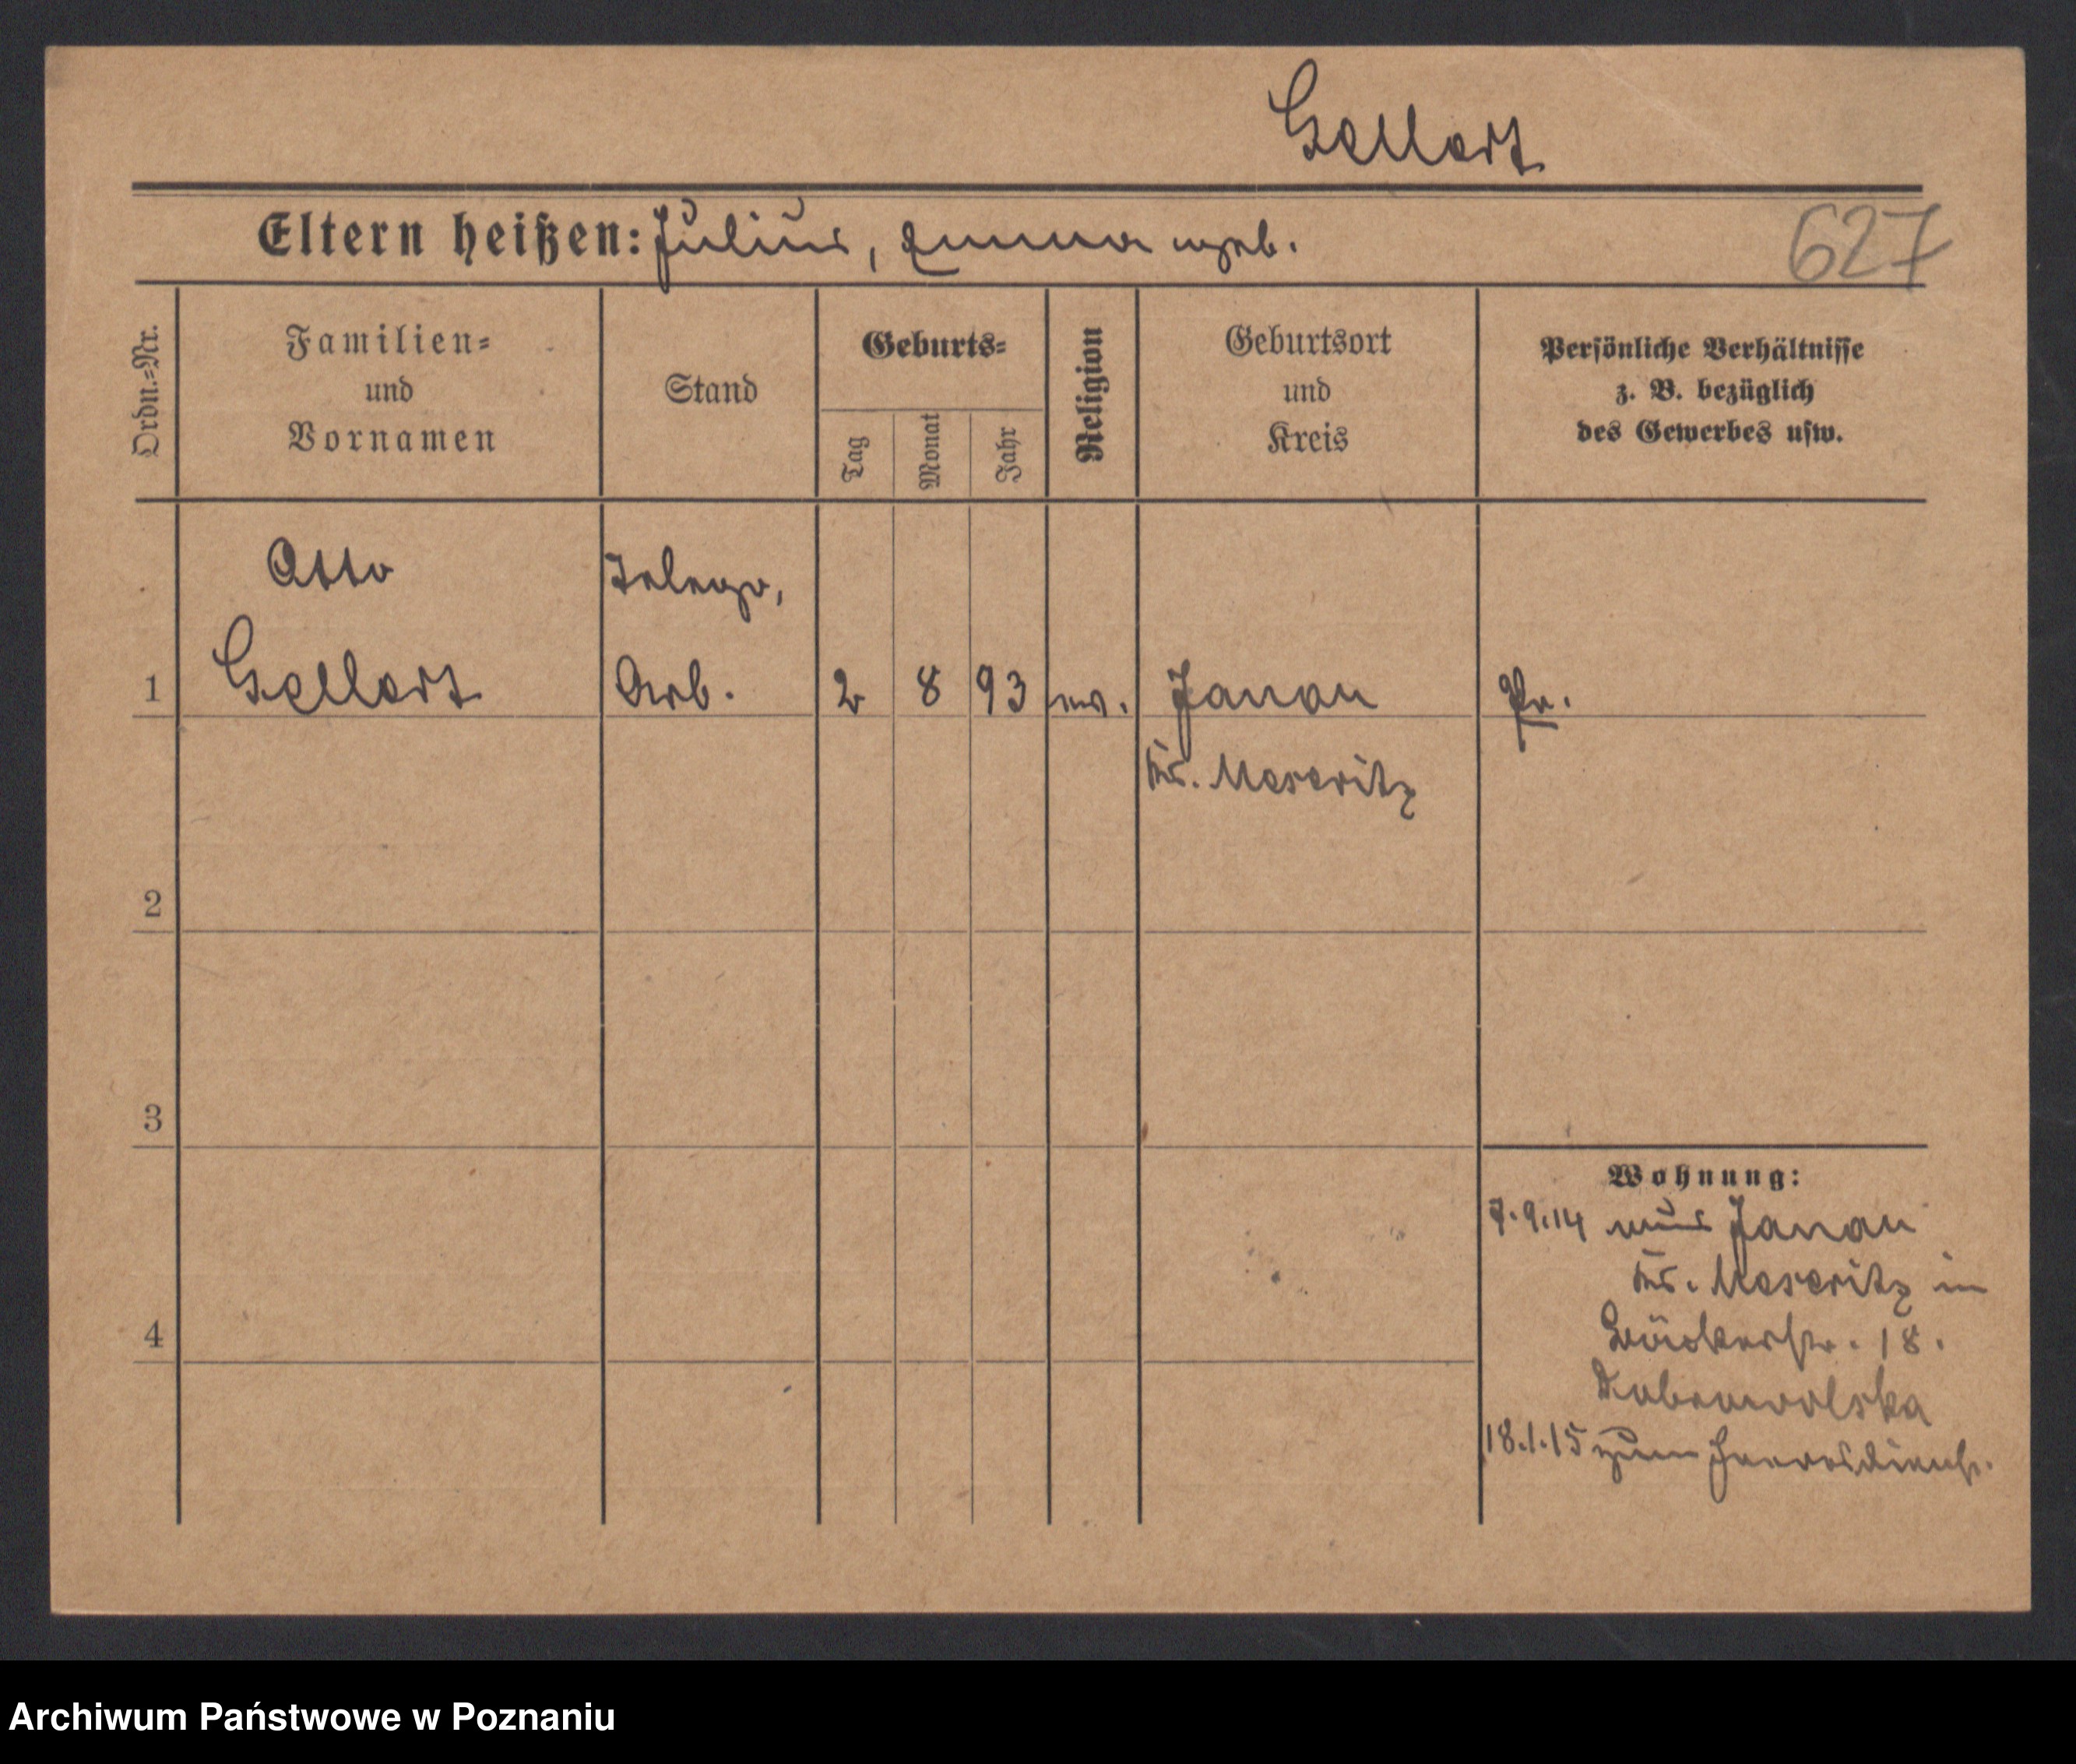 Gellert
Eltern heißen: Julius, Emma ugeb.
627
Ordn.-Nr.
Familien-
und
Vornamen
Stand
Geburts-
Tag
Monat
Jahr
Religion
Geburtsort
und
Kreis
Persönliche Verhältnisse
z. B. bezüglich
des Gewerbes usw.
Otto Telegr.
1 Gellert Arb. 2 8 93 ev. Janau Pr.
Kr. Meseritz
2
3
Wohnung:
7.9.14 aus Janau
Kr. Meseritz in
Bäckerstr. 18.
4
18.1.15 zum Heeresdienst.
Archiwum Państwowe w Poznaniu